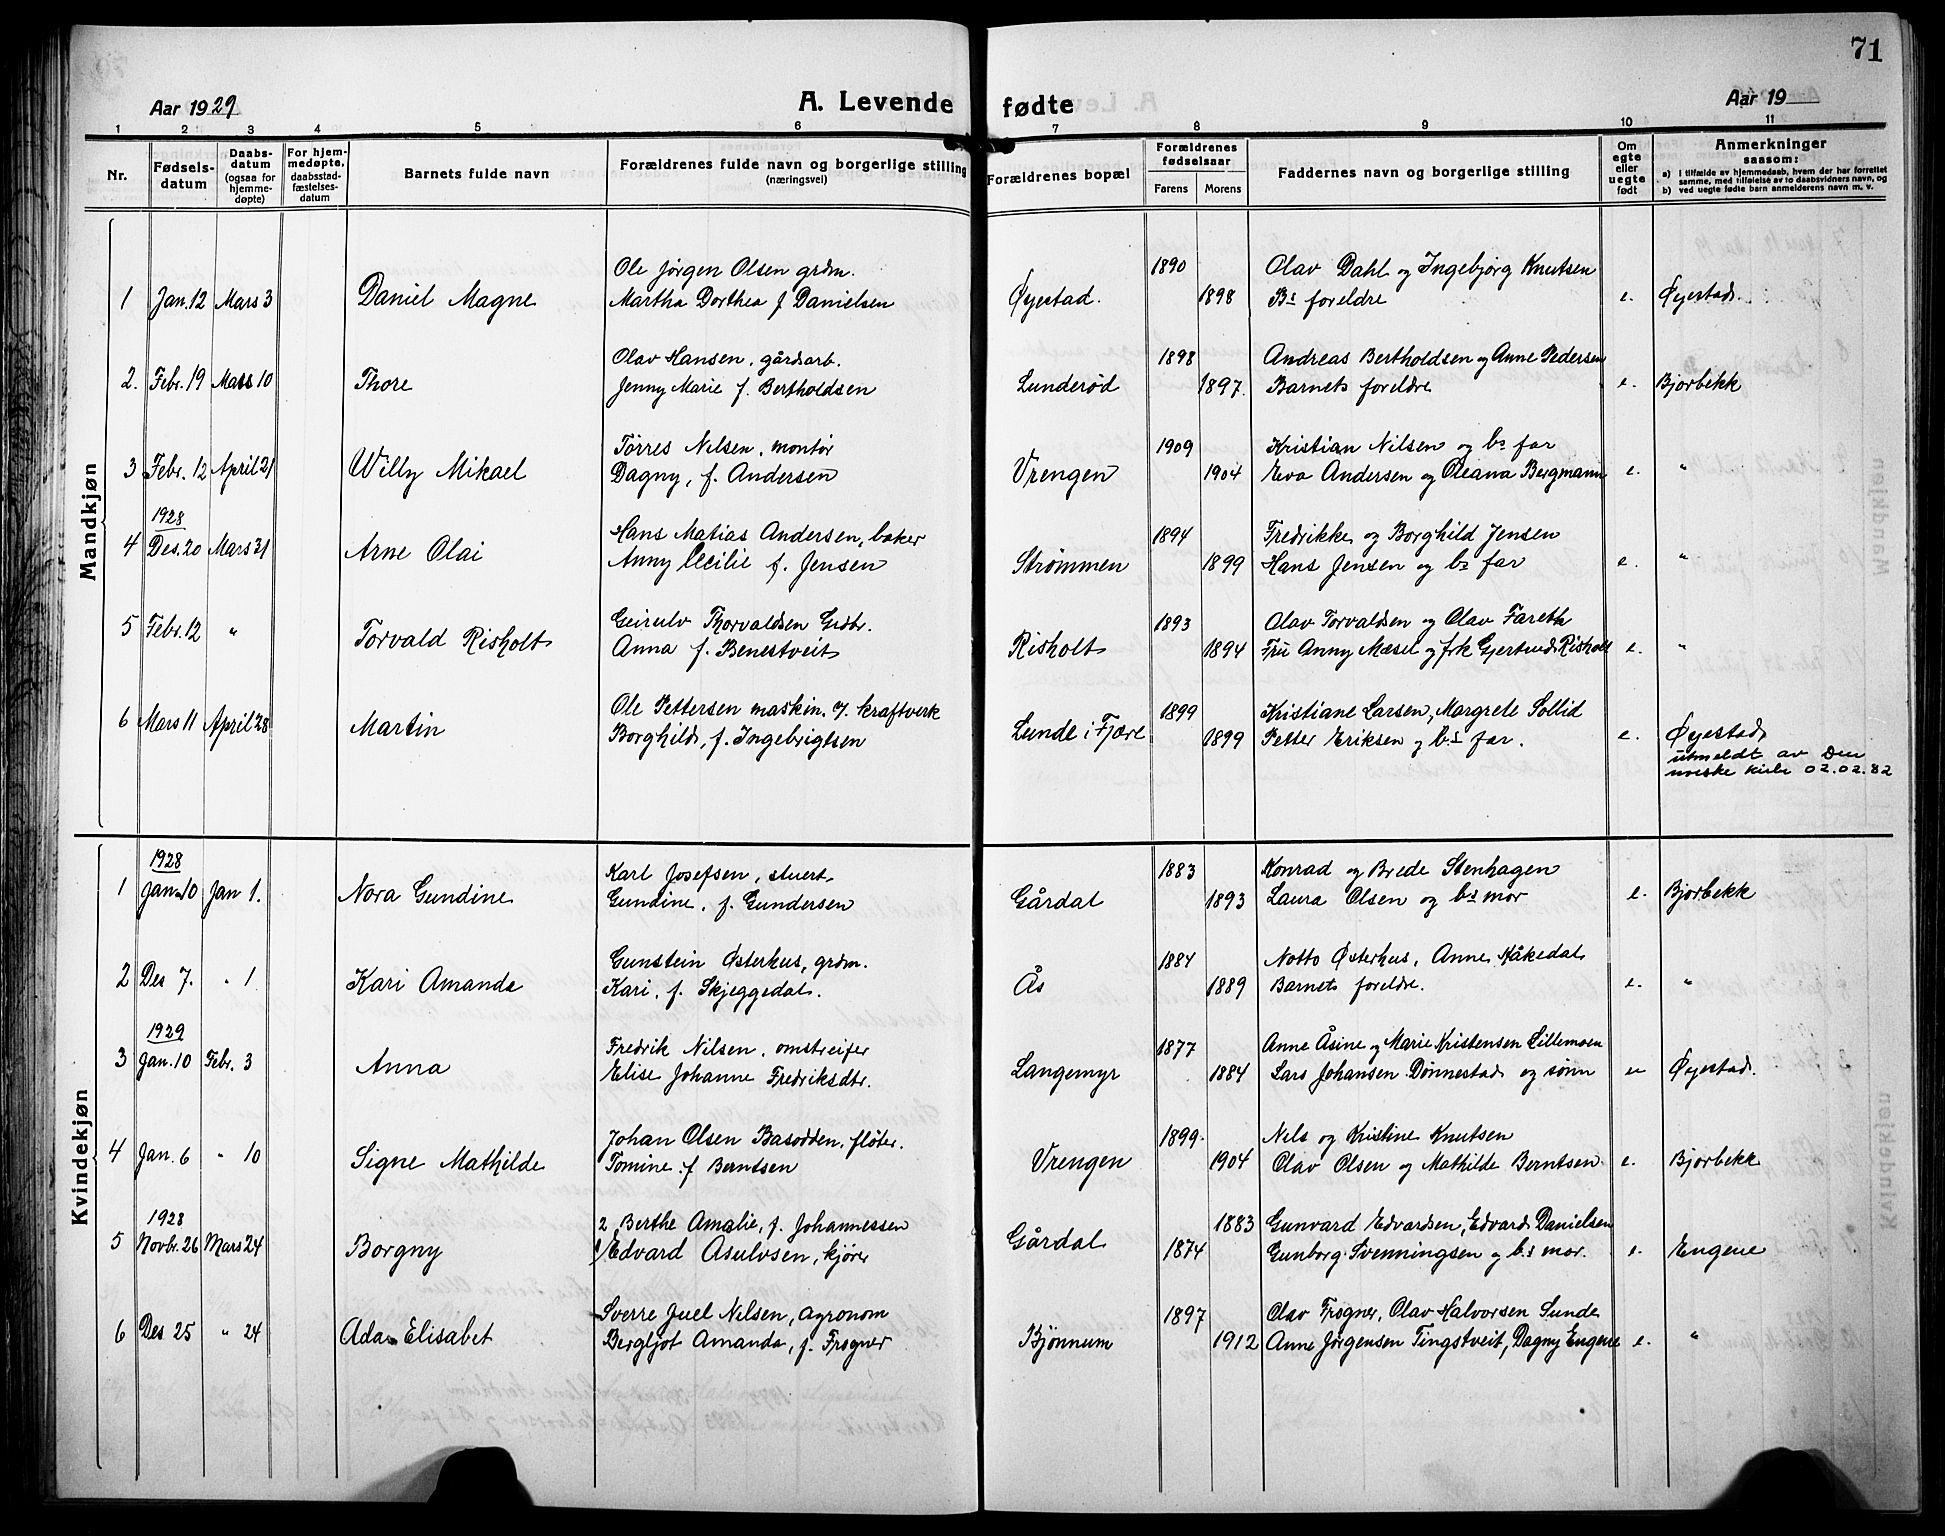 71
Aar 1929
A. Levende fødte
Aar 19
1 2 3 4 5 6 7 8 9 10 11
Nr.
Fødsels-
datum
Daabs-
datum
(ogsaa for
hjemme-
døpte)
For hjem-
medøpte,
daabsstad-
fæstelses-
datum
Barnets fulde navn
Forældrenes fulde navn og borgerlige stilling
(næringsvei)
Forældrenes bopæl
Forældrenes
fødselsaar
Farens Morens
Faddernes navn og borgerlige stilling
Om
egte
eller
uegte
født
Anmerkninger
saasom:
a) I tilfælde av hjemmedaab, hvem der har forrettet
samme, med tilføielse av to daabsvidners navn, og
b) ved uegte fødte barn anmelderens navn m. v.
Mandkjøn
Ole Jørgen Olsen grdm. 1890 Olav Dahl og Ingebjørg Knutsen
1 Jan. 12 Mars 3 Daniel Magne Martha Dorthea f Danielsen Øyestad. 1898 Bs foreldre e. Øyestad.
Olav Hansen, gårdsarb. 1898 Andreas Bertholdsen og Anne Pedersen
2. Febr. 19 Mars 10 Thore Jenny Marie f. Bertholdsen Lunderød 1897. Barnets foreldre e. Bjorbekk
Tørres Nilsen, montør 1909 Kristian Nilsen og bs far
3 Febr. 12 April 21 Willy Mikael Dagny, f. Andersen Vrengen 1904 Eva Andersen og Oleana Bergmann e. "
1928 Hans Matias Andersen, baker 1894 Fredrikke og Borghild Jensen
4 Des. 20 Mars 31 Arne Olai Anny Cecilie f. Jensen Strømmen 1899 Hans Jensen og bs far e. "
Geirulv Thorvaldsen Grdbr. 1893 Olav Torvaldsen og Olav Fareth
5 Febr. 12 " Torvald Risholt Anna f. Benestveit Risholt 1894 Fru Anny Mæsel og frk Gjertrud Risholt e. "
Ole Pettersen maskin. v. kraftverk 1899 Kristiane Larsen, Margrete Sollid
6 Mars 11 April 28 Martin Borghild, f. Ingebrigtsen Lunde i Fjære 1899 Petter Eriksen og bs far. e. Øyestad
utmeldt av Den
norske kirke 02.02.82
Kvindekjøn
1928 Karl Josefsen, stuert 1883 Konrad og Brede Stenhagen
1 Jan. 10 Jan 1. Nora Gundine Gundine, f. Gundersen Gårdal 1893 Laura Olsen og bs mor e. Bjorbekk
Gunstein Østerhus, grdm. 1884 Notto Østerhus, Anne Håkedal
2 Des 7. " 1 Kari Amanda Kari, f. Skjeggedal. Ås 1889 Barnets foreldre. e. "
1929 Fredrik Nilsen, omstreifer 1877 Anne Åsine og Marie Kristensen Lillemoen
3 Jan. 10 Febr. 3 Anna Elise Johanne Fredriksdtr. Langemyr 1884 Lars Johansen Dønnestad og sønn u Øyestad.
Johan Olsen Basodden, fløter. 1899. Nils og Kristine Knutsen
4 Jan. 6 " 10 Signe Mathilde Tomine f Berntsen Vrengen 1904 Olav Olsen og Mathilde Berntsen. e. Bjorbekk
1928 2 Berthe Amalie, f. Johannessen 1883 Gunvard Edvardsen, Edvard Danielsen
5 Novbr. 26 Mars 24 Borgny 1/ Edvard Asulvsen, kjører Gårdal 1874 Gunborg Svenningsen og bs mor. e. Engene
Sverre Juel Nilsen, agronom 1897 Olav Frogner, Olav Halvorsen Sunde
6 Des 25 " 24 Ada Elisabet Bergljot Amanda, f. Frogner Bjønnum 1912 Anne Jørgensen Tingstveit, Dagny Engene e. "